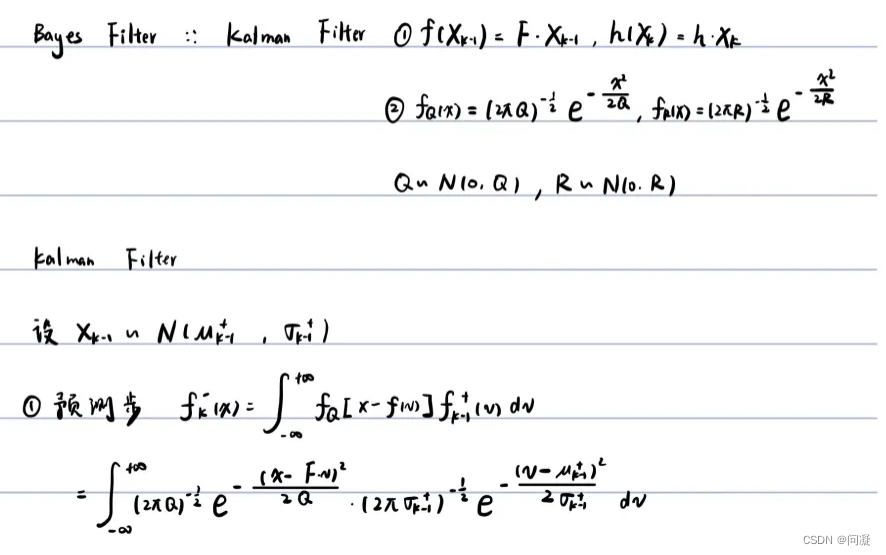 Bayes Filter :: Kalman Filter ① f(X_{k-1}) = F·X_{k-1}, h(X_k) = h·X_k
② f_Q(x) = (2πQ)^{-1/2} e^{-x²/2Q}, f_R(x) = (2πR)^{-1/2} e^{-x²/2R}
Q ~ N(0, Q), R ~ N(0, R)
Kalman Filter
设 X_{k-1} ~ N(μ_{k-1}^+, σ_{k-1}^+)
① 预测步 f_k^-(x) = ∫_{-∞}^{+∞} f_Q[x-f(v)] f_{k-1}^+(v) dv
= ∫_{-∞}^{+∞} (2πQ)^{-1/2} e^{-(x-F·v)²/2Q} · (2πσ_{k-1}^+)^{-1/2} e^{-(v-μ_{k-1}^+)²/2σ_{k-1}^+} dv
CSDN @问凝